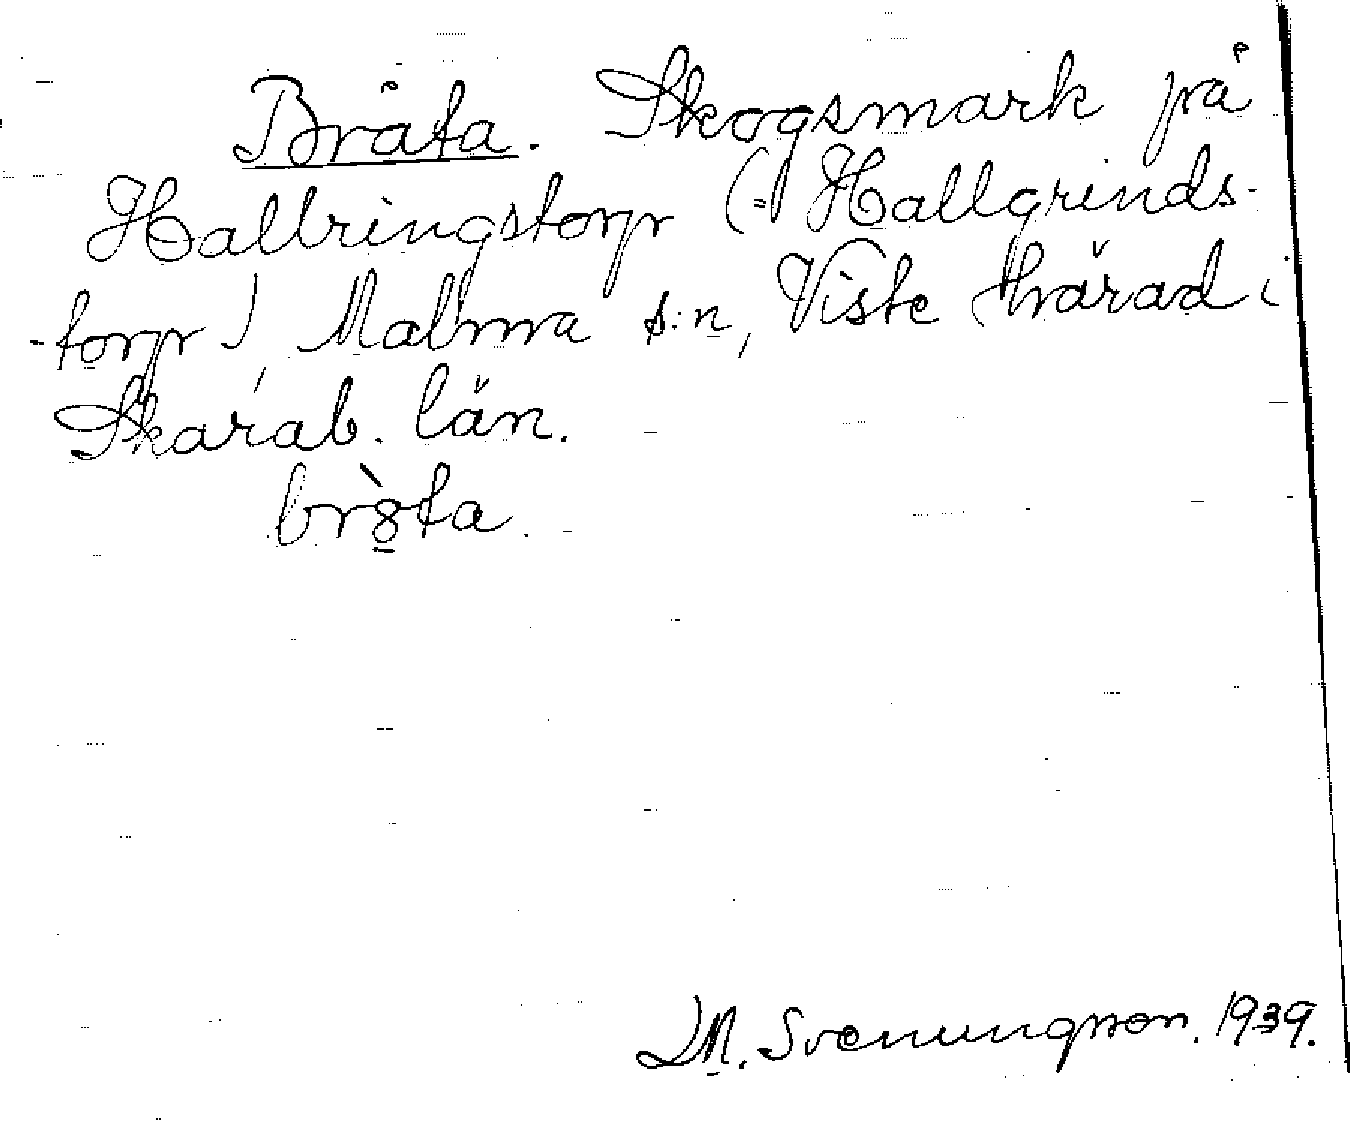 Bråta. Skogsmark på
Hallringstorp (= Hallgrinds-
-torp) Malma s:n, Viste härad i
Skarab. län.
brȣ̀ta.
M. Svenungsson. 1939.